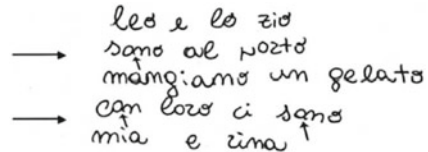 leo e lo zio
sono al porto
mangiamo un gelato
con loro ci sono
mia e rina